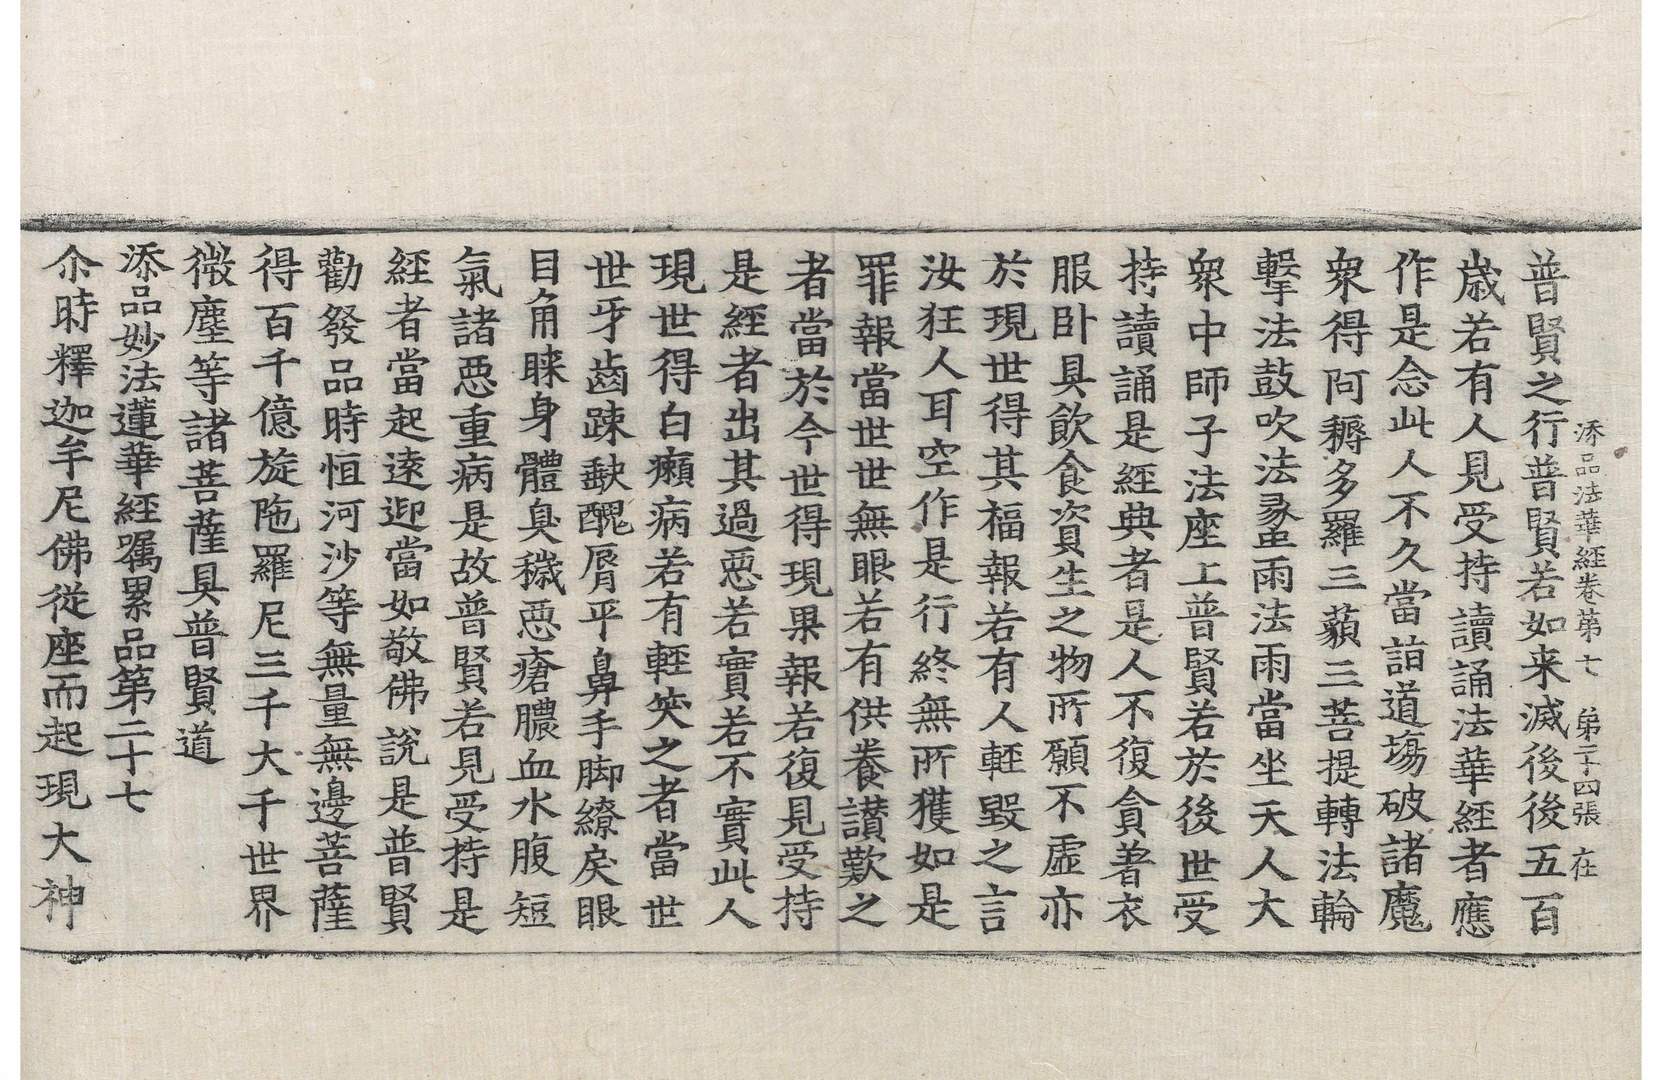 添品法華經卷第七 第二十四張 在
普賢之行普賢若如来滅後後五百
歳若有人見受持讀誦法華經者應
作是念此人不久當詣道塲破諸魔
衆得阿耨多羅三藐三菩提轉法輪
擊法鼓吹法䗍雨法雨當坐天人大
衆中師子法座上普賢若於後世受
持讀誦是經典者是人不復貪著衣
服卧具飲食資生之物所願不虛亦
於現世得其福報若有人輕毀之言
汝狂人耳空作是行終無所獲如是
罪報當世世無眼若有供養讃歎之
者當於今世得現果報若復見受持
是經者出其過惡若實若不實此人
現世得白癩病若有輕笑之者當世
世牙齒踈𡙇醜脣平鼻手脚繚戾眼
目角睞身體臭穢惡瘡膿血水腹短
氣諸惡重病是故普賢若見受持是
經者當起遠迎當如敬佛說是普賢
勸發品時恒河沙等無量無邊菩薩
得百千億旋陁羅尼三千大千世界
微塵等諸菩薩具普賢道
添品妙法蓮華經嘱累品第二十七
尒時釋迦牟尼佛從座而起現大神